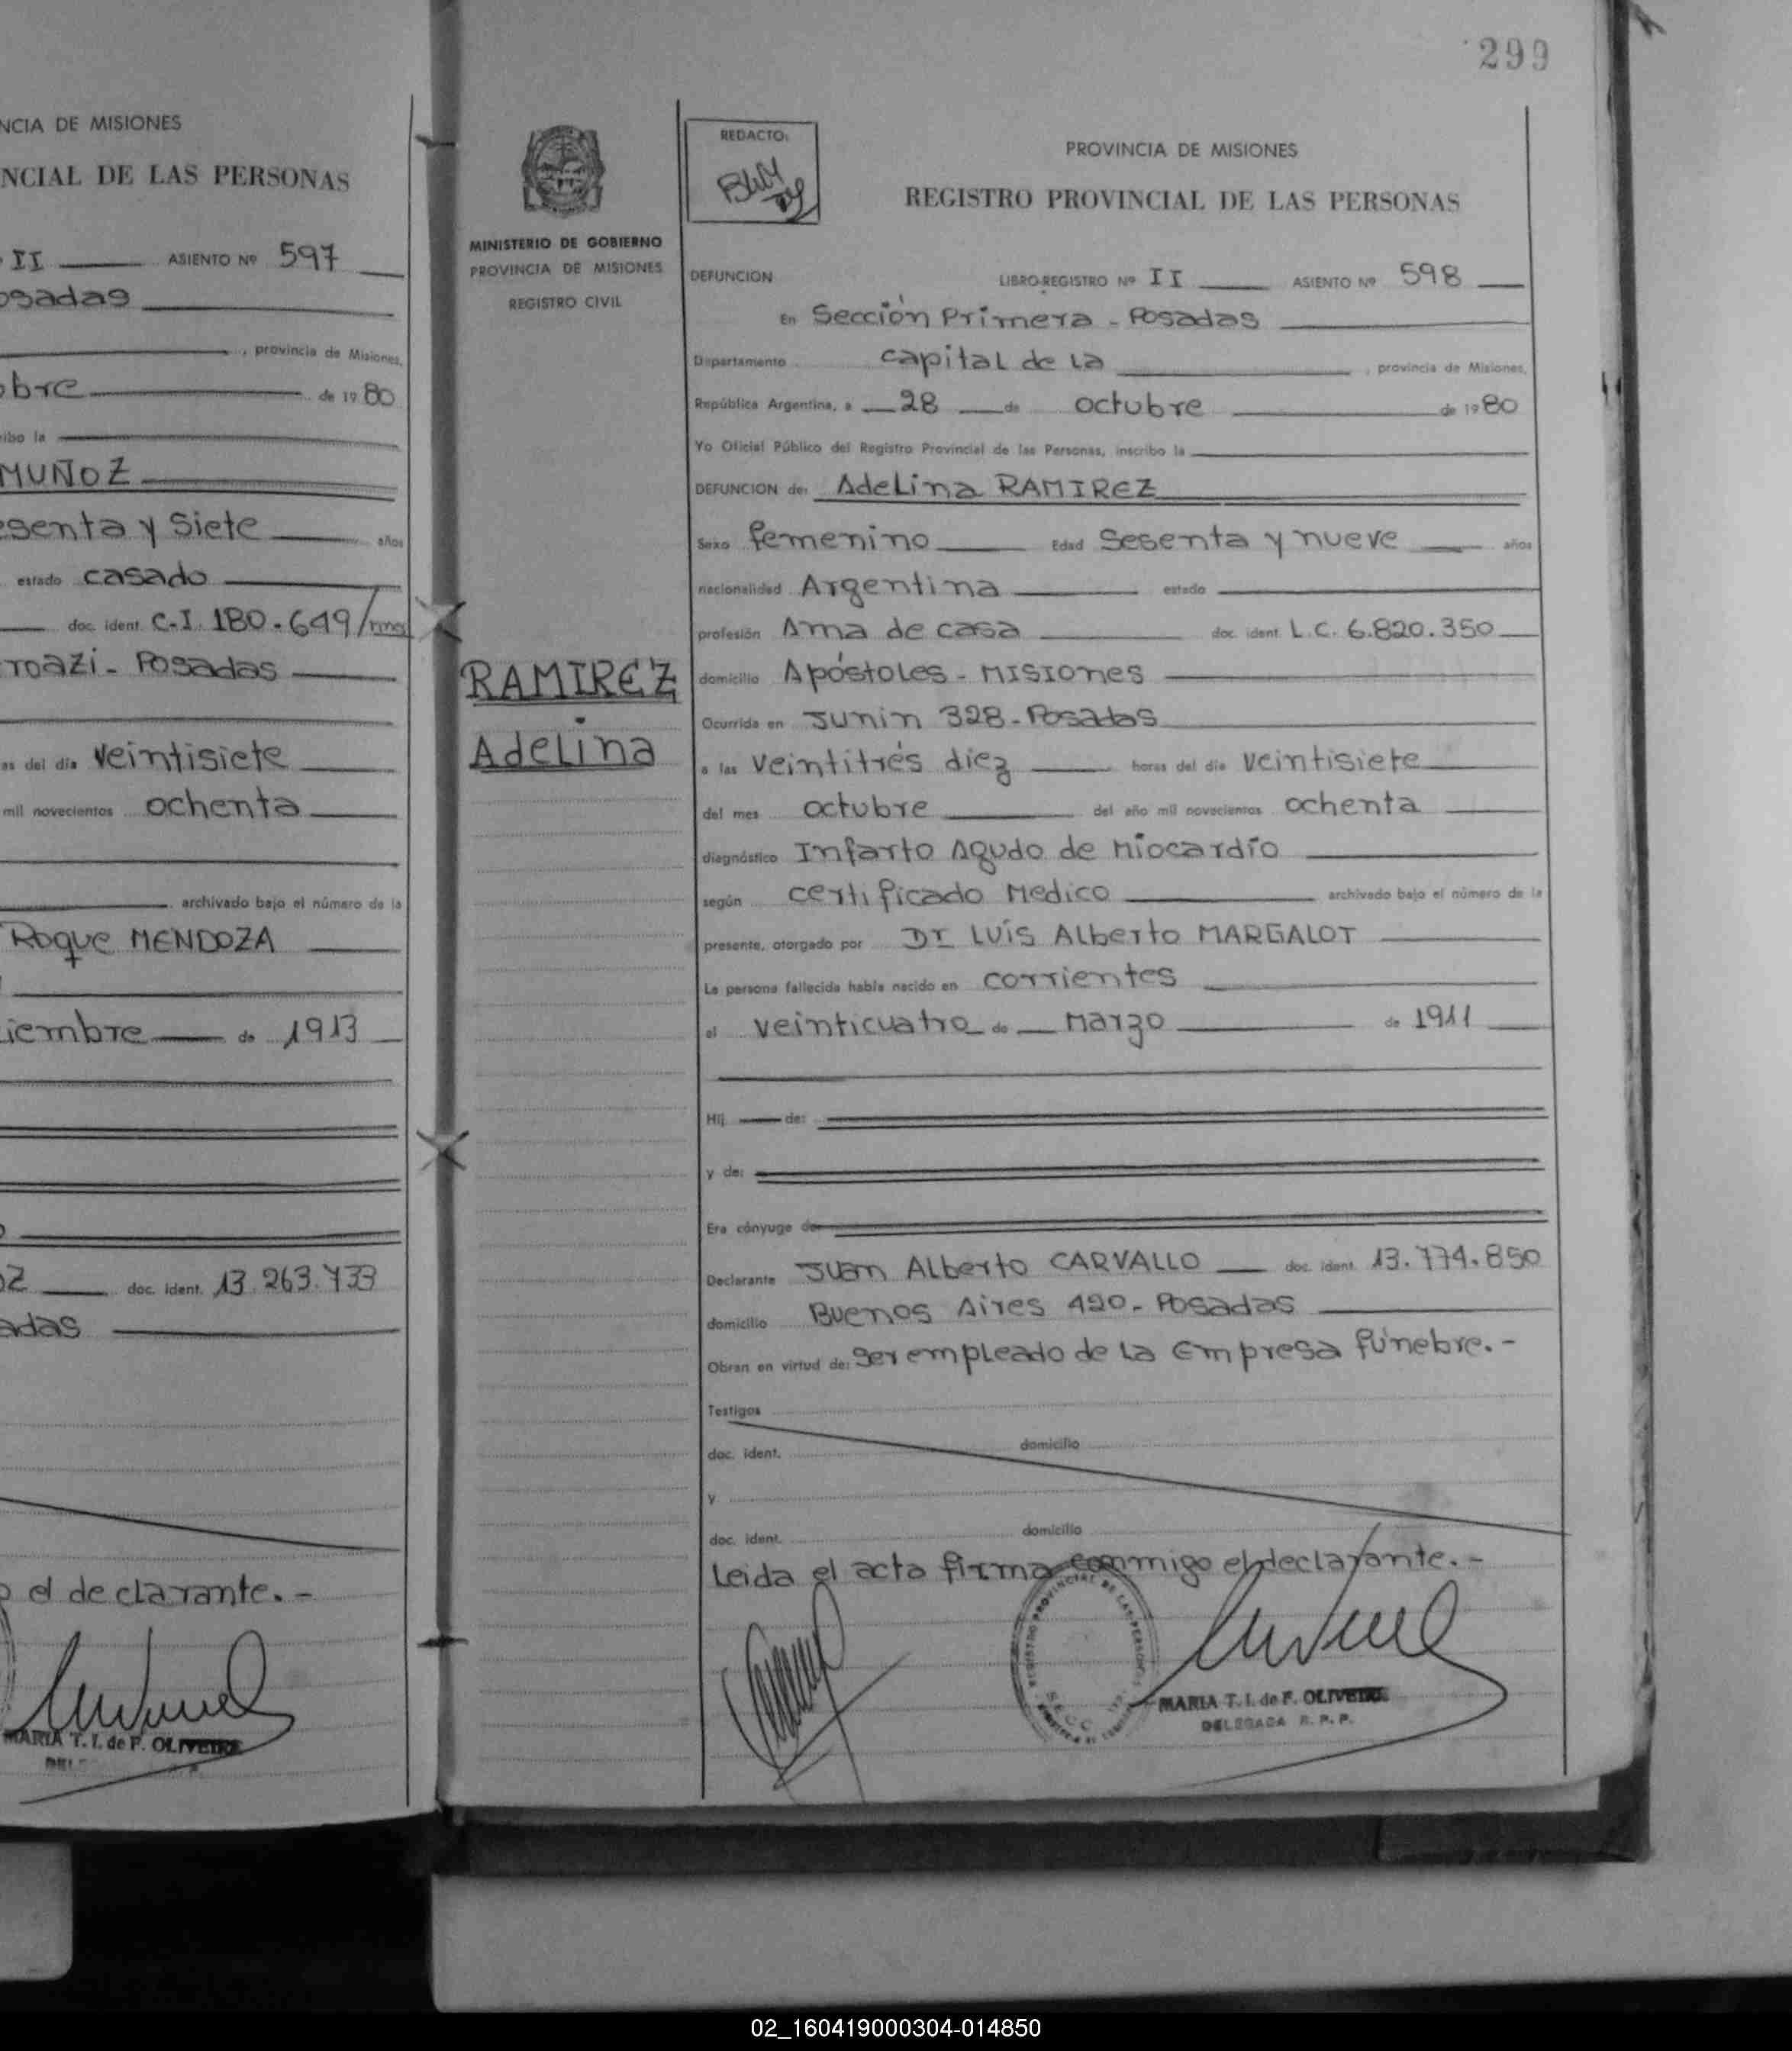 NCIA DE MISIONES
NCIAL DE LAS PERSONAS
II ASIENTO Nº 597
osadas
, provincia de Misiones,
obre de 1980
ribo la
MUÑOZ
esenta y Siete años
estado casado
doc. ident. C.I. 180.649/mnes
roazi - Posadas
as del día veintisiete
mil novecientos ochenta
archivado bajo el número de la
Roque MENDOZA
iembre de 1913
OZ doc. ident. 13.263.733
adas
o el declarante.-
MARIA T. I. de F. OLIVEIRA
299
MINISTERIO DE GOBIERNO
PROVINCIA DE MISIONES
REGISTRO CIVIL
RAMIREZ
Adelina
REDACTO:
PROVINCIA DE MISIONES
REGISTRO PROVINCIAL DE LAS PERSONAS
DEFUNCION LIBRO-REGISTRO Nº II ASIENTO Nº 598
En Sección Primera - Posadas
Departamento capital de la , provincia de Misiones,
República Argentina, a 28 de octubre de 1980
Yo Oficial Público del Registro Provincial de las Personas, inscribo la
DEFUNCION de: Adelina RAMIREZ
Sexo femenino Edad Sesenta y nueve años
nacionalidad Argentina estado
profesión Ama de casa doc. ident. L.C. 6.820.350
domicilio Apóstoles - Misiones
Ocurrida en Junin 328 - Posadas
a las veintitrés diez horas del día veintisiete
del mes octubre del año mil novecientos ochenta
diagnóstico Infarto Agudo de Miocardio
según certificado Medico archivado bajo el número de la
presente, otorgado por Dr Luis Alberto MARGALOT
La persona fallecida había nacido en corrientes
el veinticuatro de Marzo de 1911
Hij de:
y de:
Era cónyuge de
Declarante Juan Alberto CARVALLO doc. ident. 13.774.850
domicilio Buenos Aires 420 - Posadas
Obran en virtud de: ser empleado de la Empresa fúnebre.-
Testigos
doc. ident. domicilio
y
doc. ident. domicilio
Leida el acta firma conmigo el declarante.-
REGISTRO PROVINCIAL DE LAS PERSONAS
MARIA T. I. de F. OLIVEIRA
DELEGADA R. P. P.
02_160419000304-014850